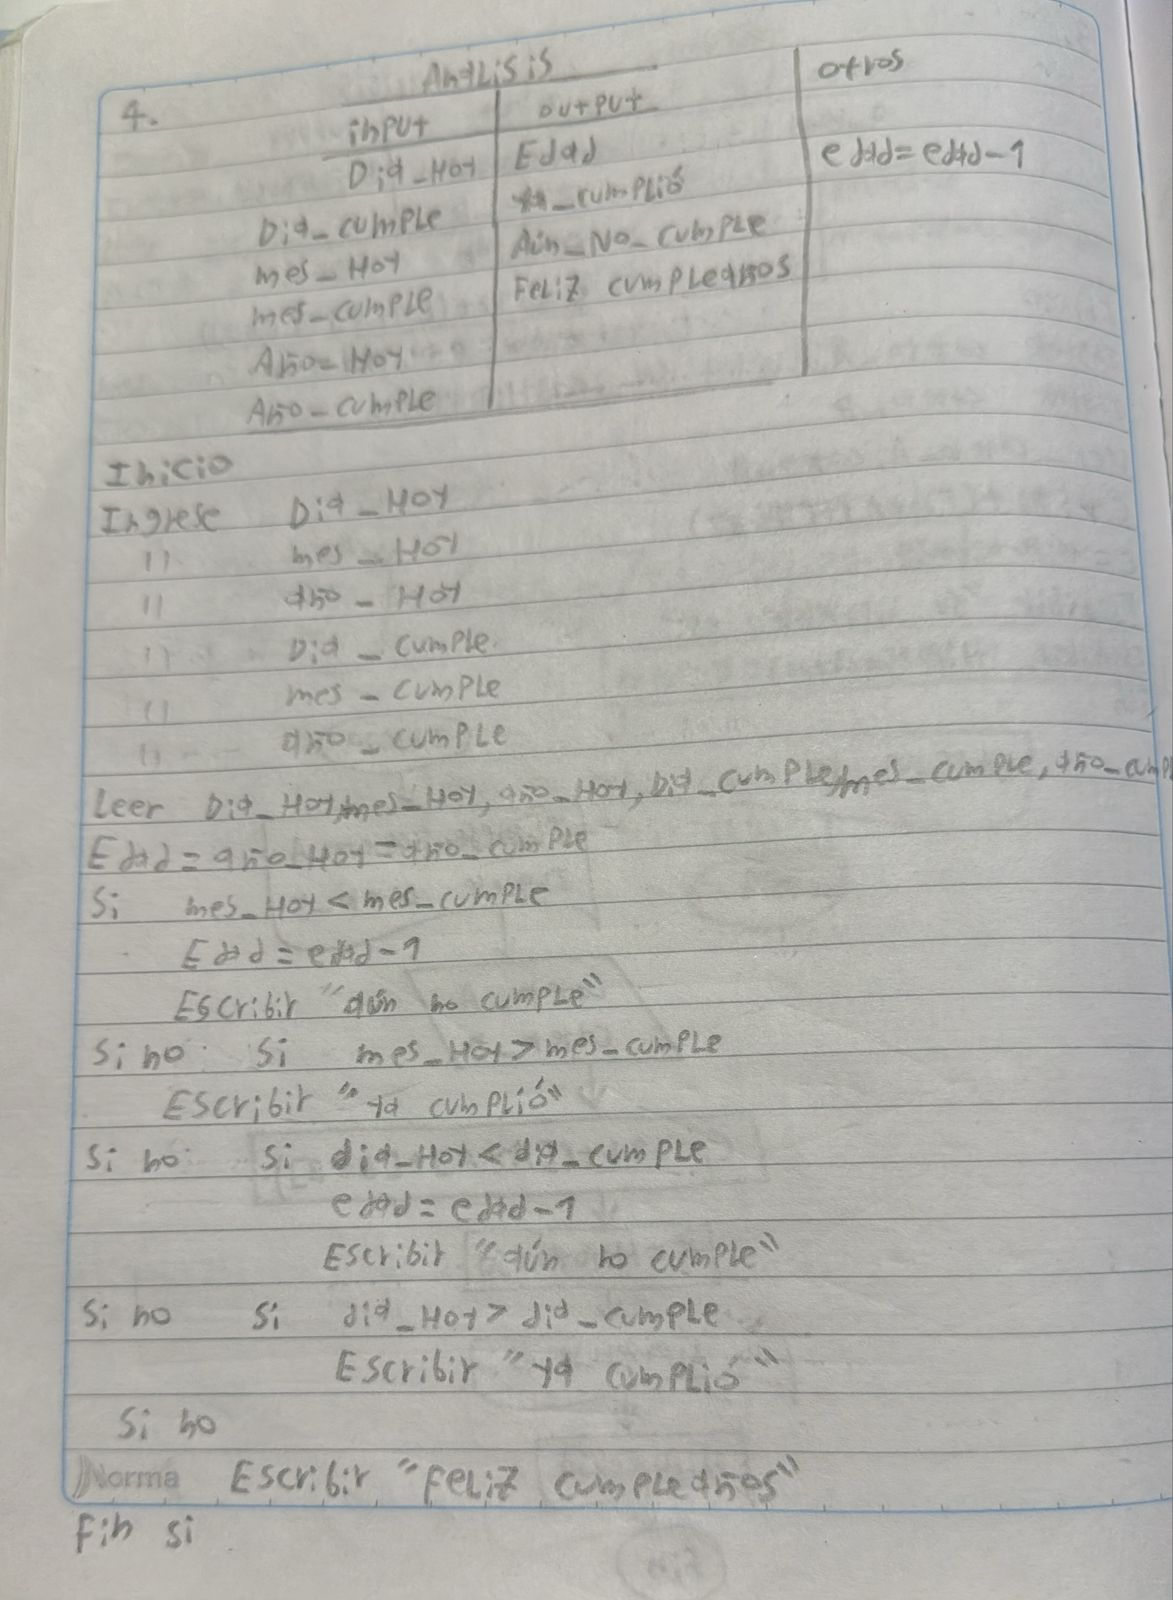 Análisis
4. input output otros
Dia_Hoy Edad edad=edad-1
Dia_cumple ya_cumplió
mes_Hoy Aún_No_cumple
mes_cumple Feliz cumpleaños
Año_Hoy
Año_cumple
Inicio
Ingrese Dia_Hoy
" mes_Hoy
" año_Hoy
" Dia_cumple
" mes_cumple
" año_cumple
Leer Dia_Hoy, mes_Hoy, año_Hoy, Dia_cumple, mes_cumple, año_cumpl
Edad=año_Hoy=año_cumple
Si mes_Hoy<mes_cumple
Edad=edad-1
Escribir "aún no cumple"
Si no Si mes_Hoy>mes_cumple
Escribir "ya cumplió"
Si no Si dia_Hoy<dia_cumple
edad=edad-1
Escribir "aún no cumple"
Si no Si dia_Hoy>dia_cumple
Escribir "ya cumplió"
Si no
Norma Escribir "Feliz cumpleaños"
Fin si